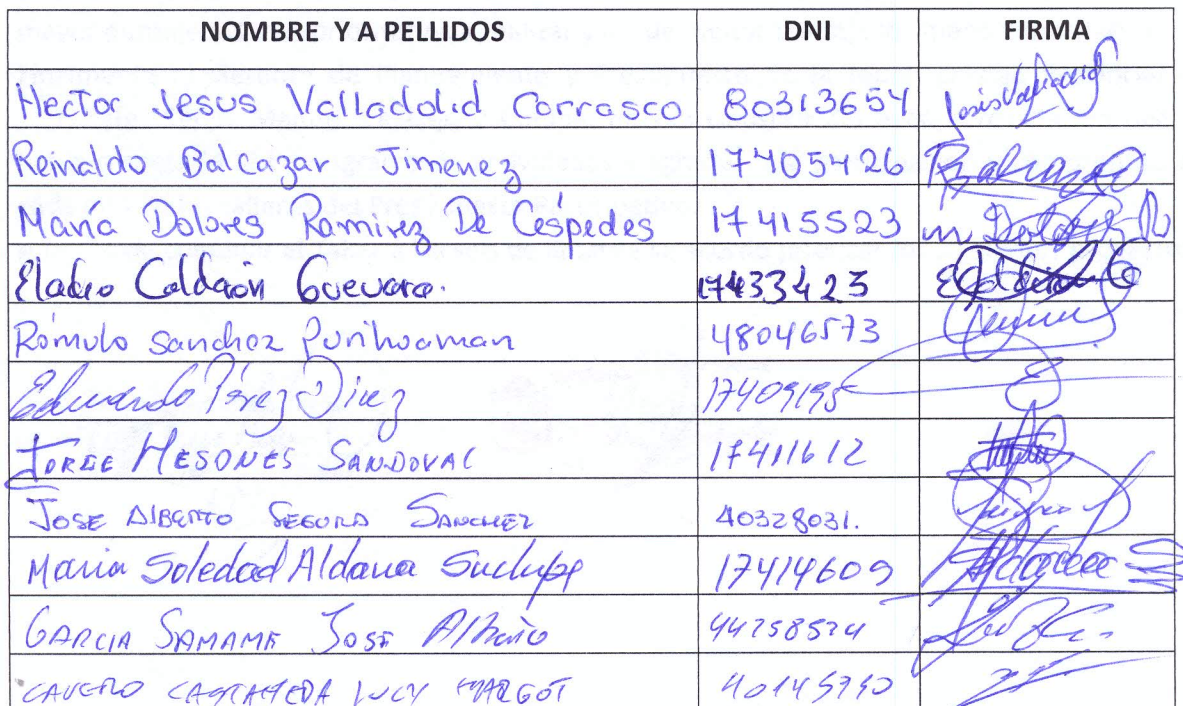 NOMBRE Y A PELLIDOS DNI FIRMA
Hector Jesus Valladolid Carrasco 80313654
Reinaldo Balcazar Jimenez 17405426
María Dolores Ramirez De Céspedes 17415523
Eladio Calderón Guevara. 17433423
Rómulo Sanchez Purihuaman 48046573
Eduardo Pérez Díez 17409195
JORGE MESONES SANDOVAL 17411612
JOSE ALBERTO SEGURA SANCHEZ 40328031.
Maria Soledad Aldana Suclupe 17414609
GARCIA SAMAME JOSE
CAVERO CASTAÑEDA LUCY MARGOT